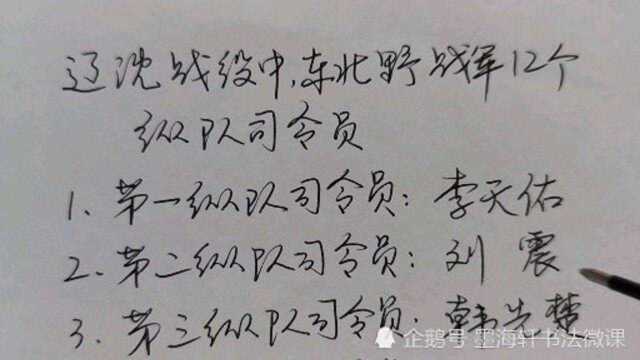 辽沈战役中,东北野战军12个
纵队司令员
1、第一纵队司令员：李天佑
2、第二纵队司令员：刘震
3、第三纵队司令员：韩先楚
企鹅号 墨海轩书法微课